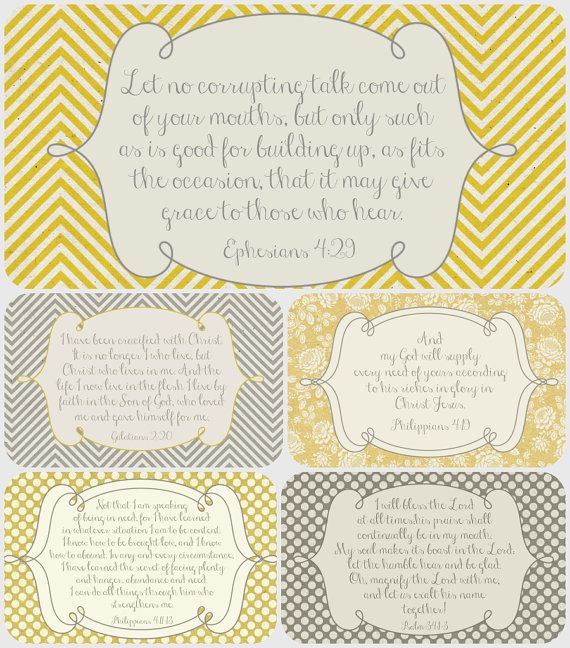 Let no corrupting talk come out
of your mouths, but only such
as is good for building up, as fits
the occasion, that it may give
grace to those who hear.
Ephesians 4:29
I have been crucified with Christ.
It is no longer I who live, but
Christ who lives in me. And the
life I now live in the flesh I live by
faith in the Son of God, who loved
me and gave himself for me.
Galatians 2:20
And
my God will supply
every need of yours according
to his riches in glory in
Christ Jesus.
Philippians 4:19
Not that I am speaking
of being in need, for I have learned
in whatever situation I am to be content.
I know how to be brought low, and I know
how to abound. In any and every circumstance,
I have learned the secret of facing plenty
and hunger, abundance and need.
I can do all things through him who
strengthens me.
Philippians 4:11-13
I will bless the Lord
at all times; his praise shall
continually be in my mouth.
My soul makes its boast in the Lord;
let the humble hear and be glad.
Oh, magnify the Lord with me,
and let us exalt his name
together!
Psalm 34:1-3